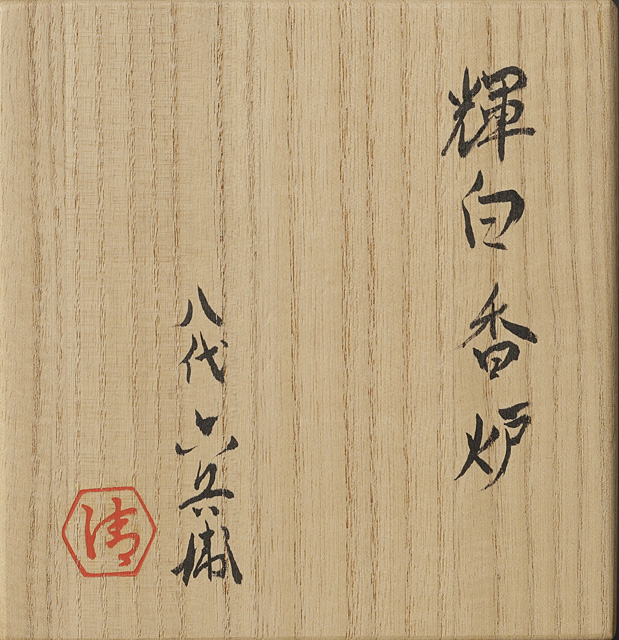 輝白香炉
八代六兵衛
清